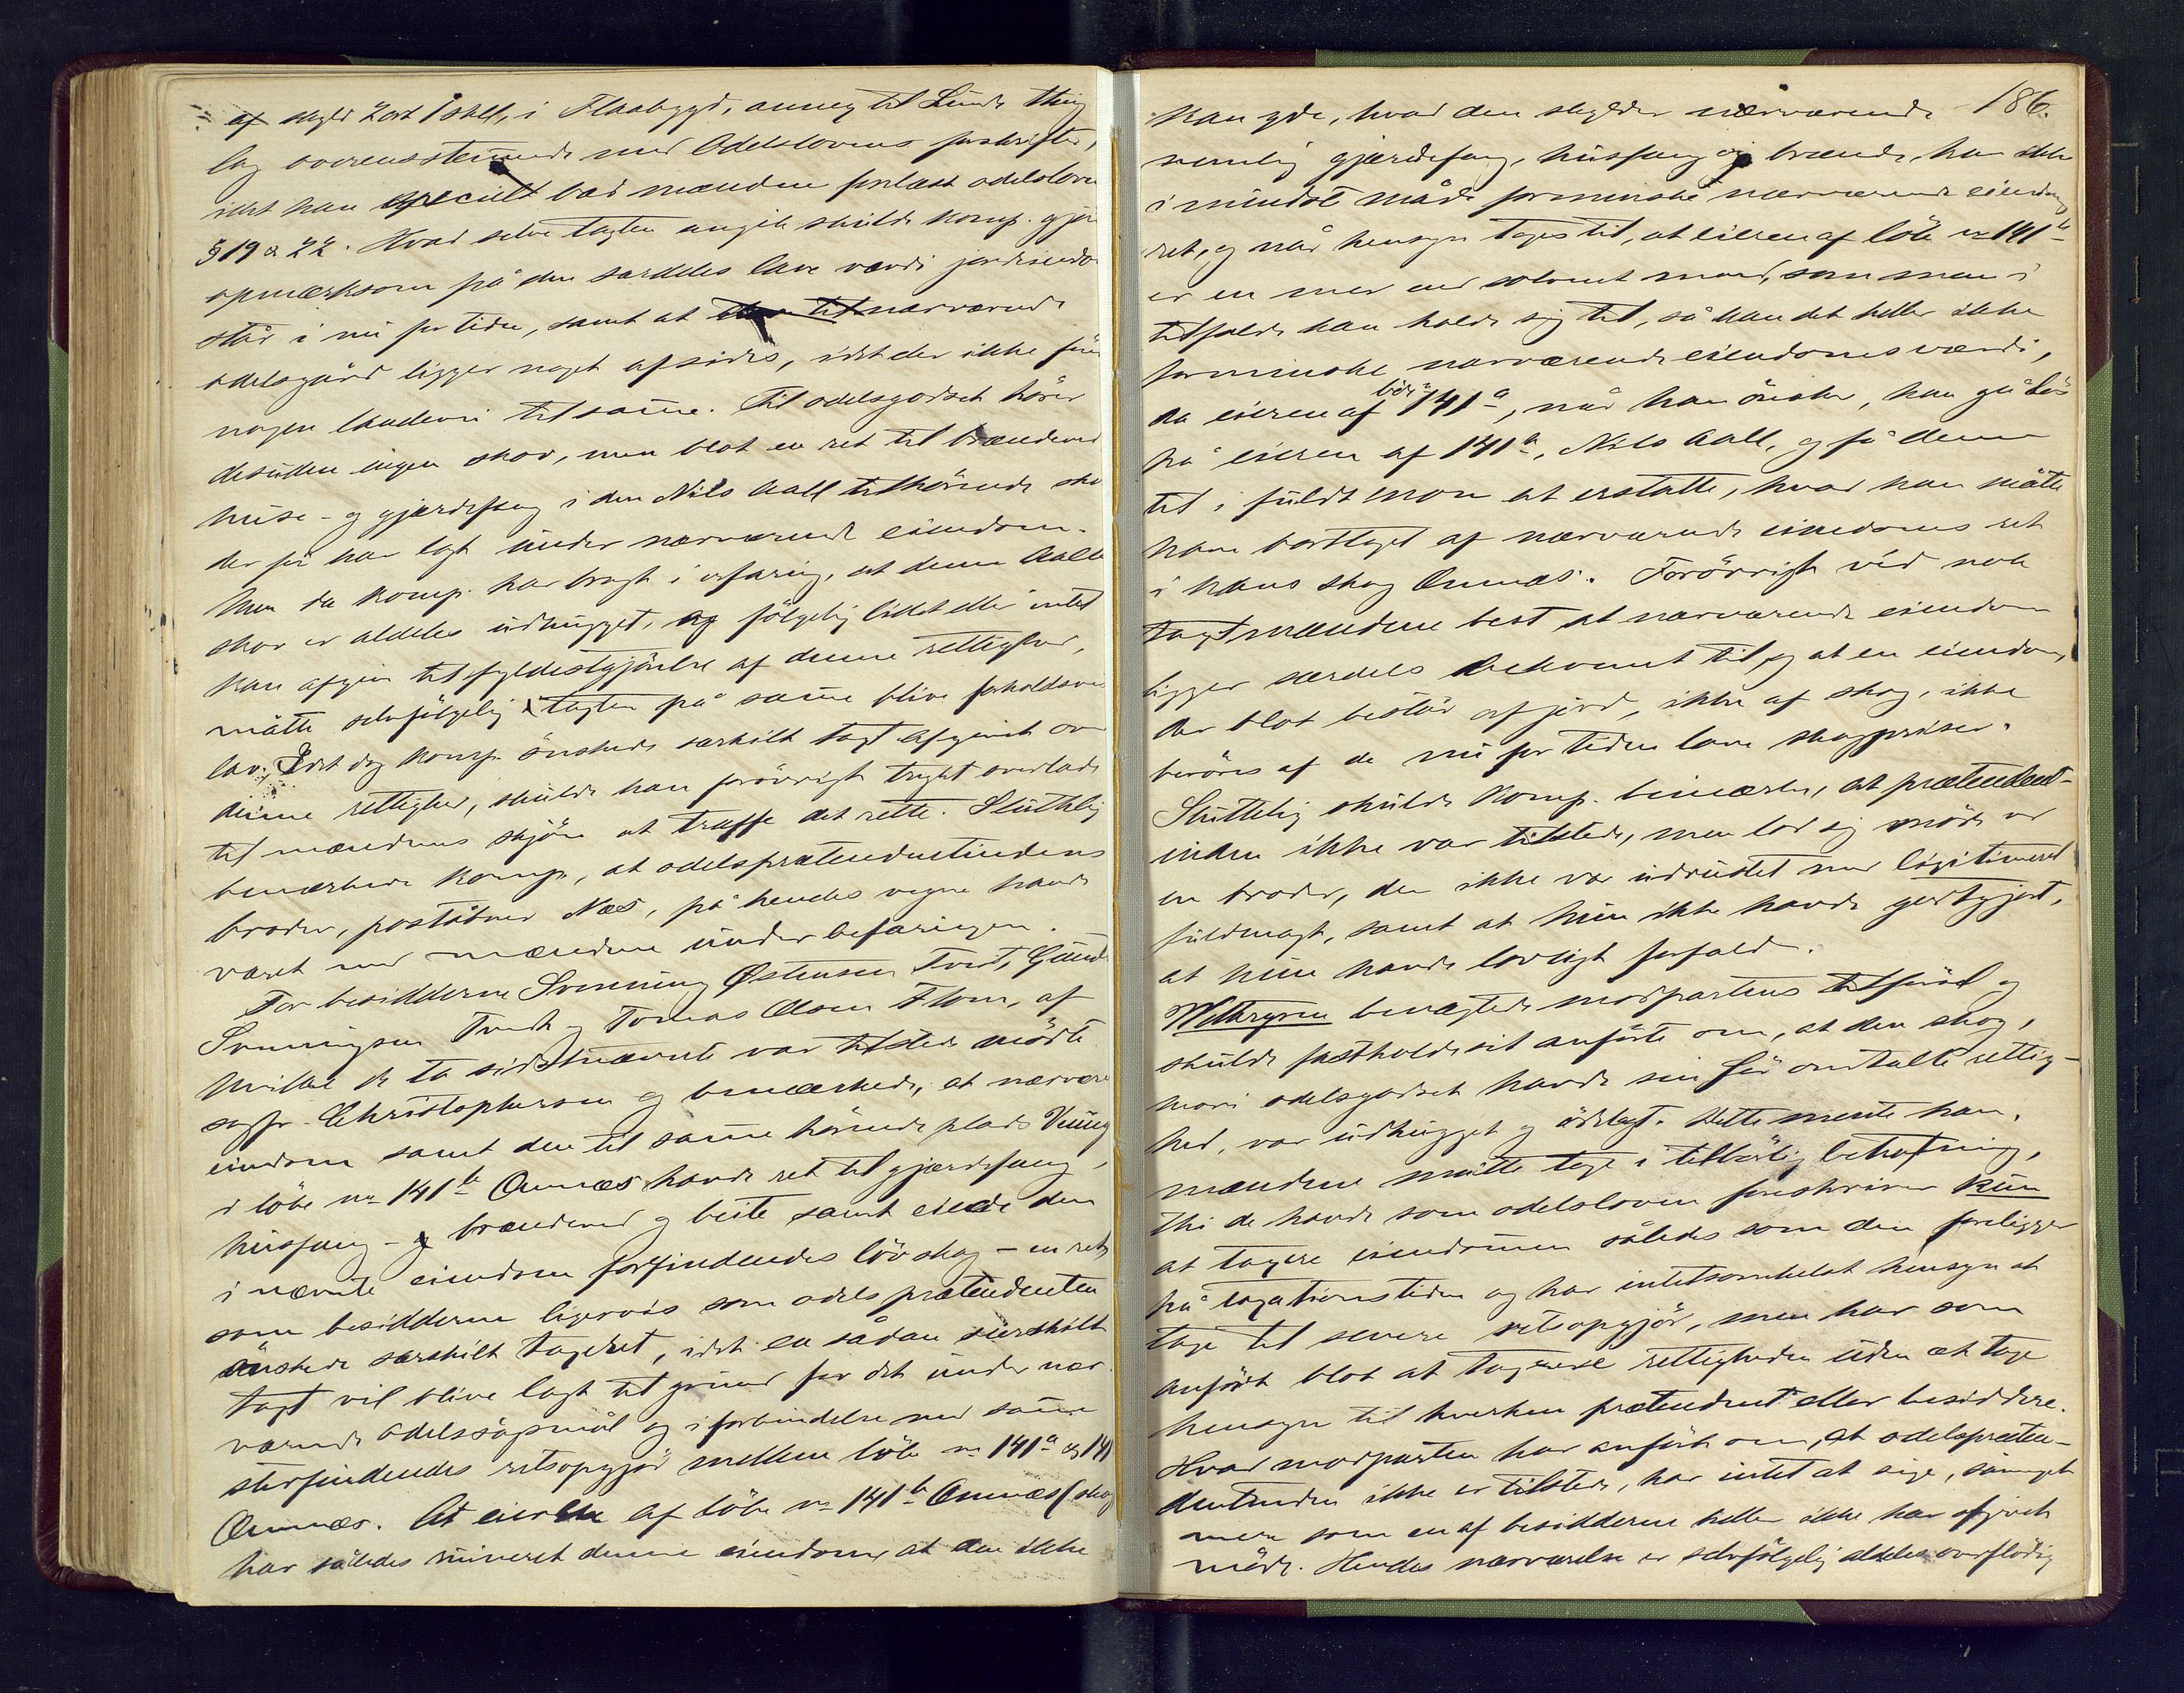 af skyld 2 ort 1 skll, i Flaabygd, annex til Lunde thing
lag overensstemmende med Odelslovens forskrifter,
idet han specielt bad mændene forlæst odelsloven
§ 19 & 22. Hvad selve taxten angik skulde komp. gjøre
opmærksom på den særdeles lave værdi jordeiendo
står i nu for tiden, samt at nærværende
odelsgård ligger noget afsides, idet der ikke fin
nogen landevei til samme. Til odelsgodset hører
desuden ingen skov, men blot en ret til brændeved
huse- og gjærdefang i den Nils Aall tilhørende sko
der få har lagt under nærværende eiendom.
Men da komp. har bragt i erfaring, at denne Aalls
skov er aldeles udhugget, og følgelig lidet eller intet
kan afgive til fyldestgjørelse af denne rettighed,
måtte selvfølgelig taxten på samme blive forholdsvis
lav. Idet dog komp. ønskede særskilt taxt afgivet over
denne rettighed, skulde han forøvrigt trygt overlade
til mændenes skjøn at træffe det rette. Sluttelig
bemærkede komp, at odelsprætendentindens
broder, postabner Næs, på hendes vegne havde
været med mændene under befaringen.
For besidderne Svenning Østensen Tveit, Gund
Svenningsen Tveit og Tomas Olsen Flom, af
hvilke de to sidstnævnte var tilstede mødte
sagfr. Christophersen og bemærkede, at nærvære
eiendom samt den til samme hørende plads
i løbe no 141 b Omnæs havde ret til gjærdefang,
husfang- og brændeved og beite samt eiede den
i nævnte eiendom forfindendes løvskog – en ret,
som besidderne ligervis som odelsprætendenten
ønskede særskilt taxeret, idet en sådan særskilt
taxt vil blive lagt til grund for det under nær
værende odelssøgsmål og i forbindelse med samme
stedfindendes retsopgjør mellem løbe no 141 a og 141
Omnæs. At eieren af løbe no 141 b Omnæs (skog
har således ruineret denne eiendom, at den ikke
186.
kan yde, hvad den skylder nærværende
nemlig gjærdefang, husfang og brænde, kan ikke
i mindste måde forminske nærværende eiendoms
ret, og når hensyn tages til, at eieren af løbe no 141 b
er en mer end solvent mand, som man i
tilfælde kan holde sig til, så kan det heller ikke
forminske nærværende eiendoms værdi,
da eieren af løbe no 141 a, når han ønsker, kan gå løs
på eieren af 141 b, Nils Aall, og få denne
til i fuldt mon at erstatte, hvad han måtte
have borttaget af nærværende eiendoms ret
i hans skog Omnæs. Forøvrigt véd nok
taxtmændene best, at nærværende eiendom
ligger særdeles bekvemt til, og at en eiendom,
der blot består af jord, ikke af skog, ikke
berøres af de nu for tiden lave skogpriser.
Sluttelig skulde komp. bemærke, at prætendent-
inden ikke var tilstede, men lod sig møde ved
en broder, der ikke var udrustet med legitimeret
fuldmagt, samt at hun ikke havde godtgjort,
at hun havde lovligt forfald.
Wettergreen benægtede modpartens tilførsel og
skulde fastholde sit anførte om, at den skog,
hvori odelsgodset havde sin før omtalte rettig-
hed, var udhugget og ødelagt. Dette mente han,
mændene måtte tage i tilbørlig betragtning,
thi de havde som odelsloven foreskriver kun
at taxere eiendommen således som den foreligger
på taxationstiden og har intetsomhelst hensyn at
tage til senere retsopgjør, men har som
anført blot at taxere rettigheden uden at tage
hensyn til hverken prætendent eller besiddere.
Hvad modparten har anført om, at odelspræten-
dentinden ikke er tilstede, har intet at sige, såmeget
mere som en af besidderne heller ikke har afgivet
møde. Hendes nærværelse er selvfølgelig aldeles overflødig